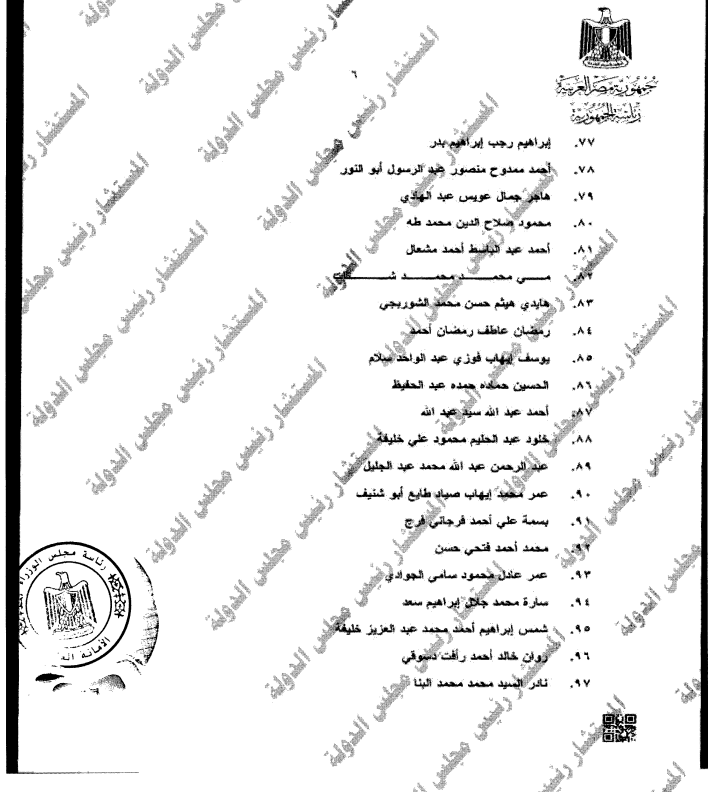 ٦
جمهورية مصر العربية
رئاسة الجمهورية
٧٧. إبراهيم رجب إبراهيم بدر
٧٨. أحمد ممدوح منصور عبد الرسول أبو النور
٧٩. هاجر جمال عويس عبد الهادي
٨٠. محمود صلاح الدين محمد طه
٨١. أحمد عبد الباسط أحمد مشعال
٨٢. مــي محمــد محمــد
٨٣. هايدي هيثم حسن محمد الشوربجي
٨٤. رمضان عاطف رمضان أحمد
٨٥. يوسف إيهاب فوزي عبد الواحد سلام
٨٦. الحسين حماده حمده عبد الحفيظ
٨٧. أحمد عبد الله سيد عبد الله
٨٨. خلود عبد الحليم محمود علي خليفة
٨٩. عبد الرحمن عبد الله محمد عبد الجليل
٩٠. عمر محمد إيهاب صياد طايع أبو شنيف
٩١. بسمة علي أحمد فرجاني فرج
٩٢. محمد أحمد فتحي حسن
٩٣. عمر عادل محمود سامى الجوادي
٩٤. سارة محمد جلال إبراهيم سعد
٩٥. شمس إبراهيم أحمد محمد عبد العزيز خليفة
٩٦. روان خالد أحمد رأفت دسوقي
٩٧. نادر السيد محمد محمد البنا
رئاسة مجلس الوزراء
الأمانة
المستشار رئيس مجلس الدولة